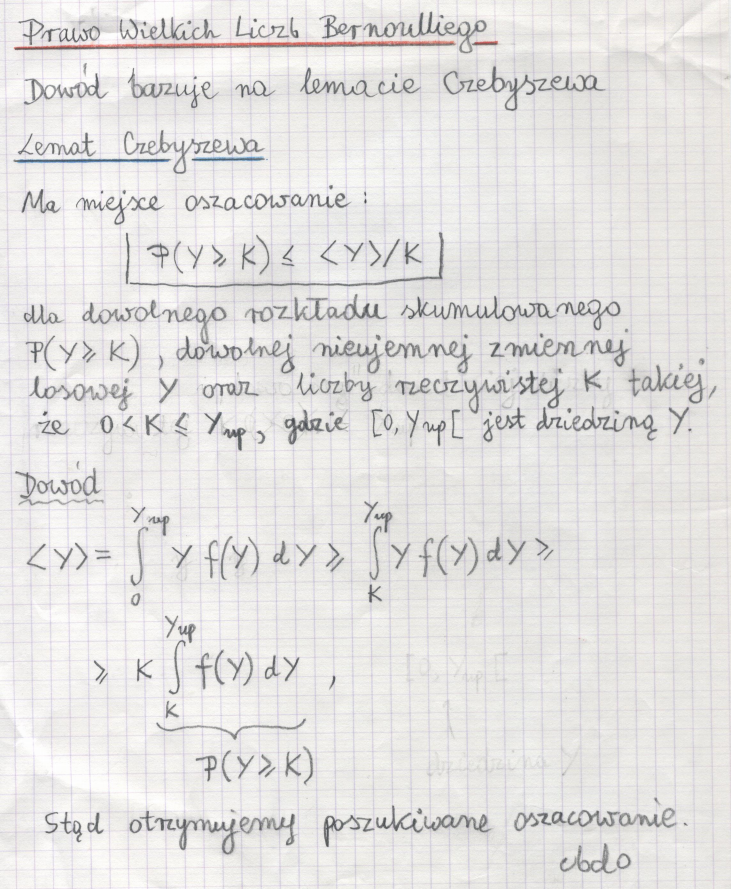 Prawo Wielkich Liczb Bernoulliego
Dowód bazuje na lemacie Czebyszewa
Lemat Czebyszewa
Ma miejsce oszacowanie :
P(Y ≥ K) ≤ <Y>/K
dla dowolnego rozkładu skumulowanego
P(Y ≥ K) , dowolnej nieujemnej zmiennej
losowej Y oraz liczby rzeczywistej K takiej,
że 0 < K ≤ Yup, gdzie [0, Yup[ jest dziedziną Y.
Dowód
<Y> = ∫₀^Yup Y f(Y) dY ≥ ∫_K^Yup Y f(Y) dY ≥
≥ K ∫_K^Yup f(Y) dY ,
P(Y ≥ K)
Stąd otrzymujemy poszukiwane oszacowanie.
cbdo